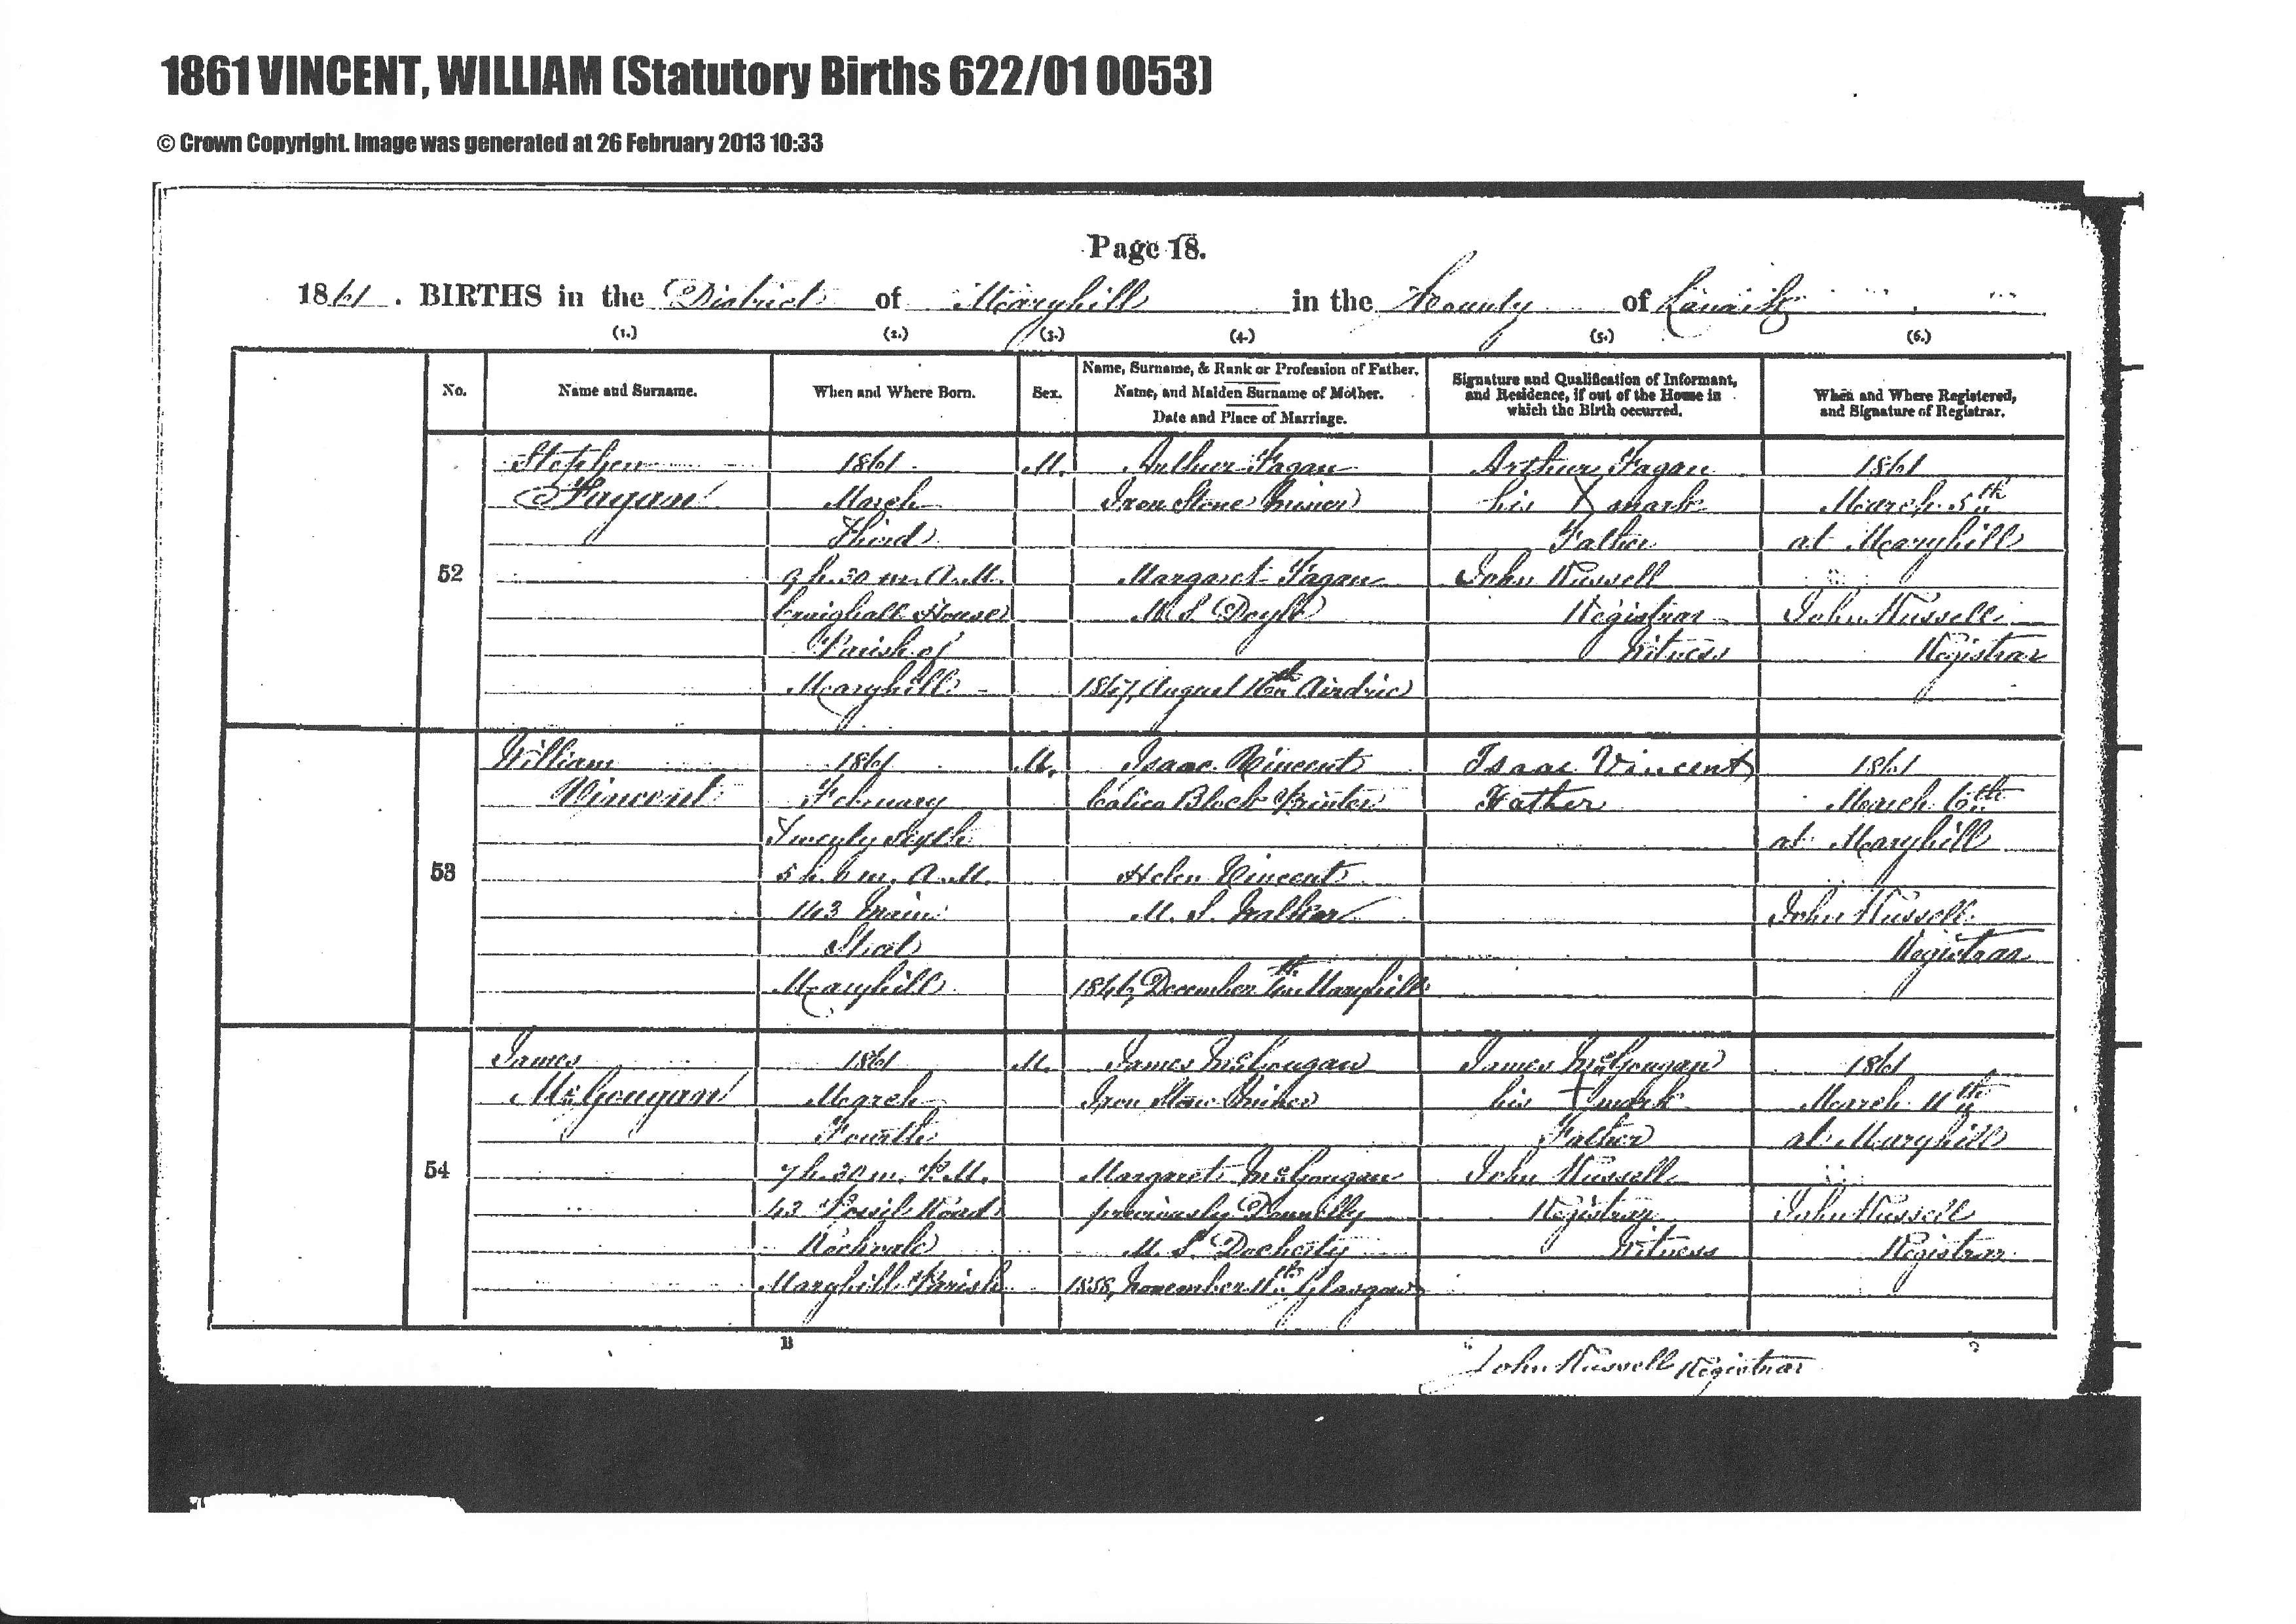 1861 VINCENT, WILLIAM (Statutory Births 622/01 0053)
© Crown Copyright. Image was generated at 26 February 2013 10:33
Page 18.
1861. BIRTHS in the District of Maryhill in the County of Lanark
(1.) (2.) (3.) (4.) (5.) (6.)
No.
Name and Surname.
When and Where Born.
Sex.
Name, Surname, & Rank or Profession of Father.
Name, and Maiden Surname of Mother.
Date and Place of Marriage.
Signature and Qualification of Informant,
and Residence, if out of the House in
which the Birth occurred.
When and Where Registered,
and Signature of Registrar.
52
Stephen
Fagan
1861
March
Third
9 h. 30 m. A.M.
Craighall House
Parish of
Maryhill
M.
Arthur Fagan
Iron Stone Miner
Margaret Fagan
M. S. Doyle
August 16th Airdrie
Arthur Fagan
his X mark
Father
John Russell
Registrar
Witness
1861
March 5th
at Maryhill
John Russell
Registrar
53
William
Vincent
1861
February
Twenty sixth
5 h. 6 m. A.M.
143 Main
Street
Maryhill
M.
Isaac Vincent
Calico Block Printer
Helen Vincent
M. S. Walker
1846, December Maryhill
Isaac Vincent
Father
1861
March 6th
at Maryhill
John Russell
Registrar
54
James
McGougan
1861
March
Fourth
7 h. 30 m. P.M.
43 Possil Road
Rockvale
Maryhill Parish
M.
James McGougan
Iron Stone Miner
Margaret McGougan
previously Donnelly
M. S. Docherty
1858, November 11th Glasgow
James McGougan
his X mark
Father
John Russell
Registrar
Witness
1861
March 11th
at Maryhill
John Russell
Registrar
B
John Russell Registrar